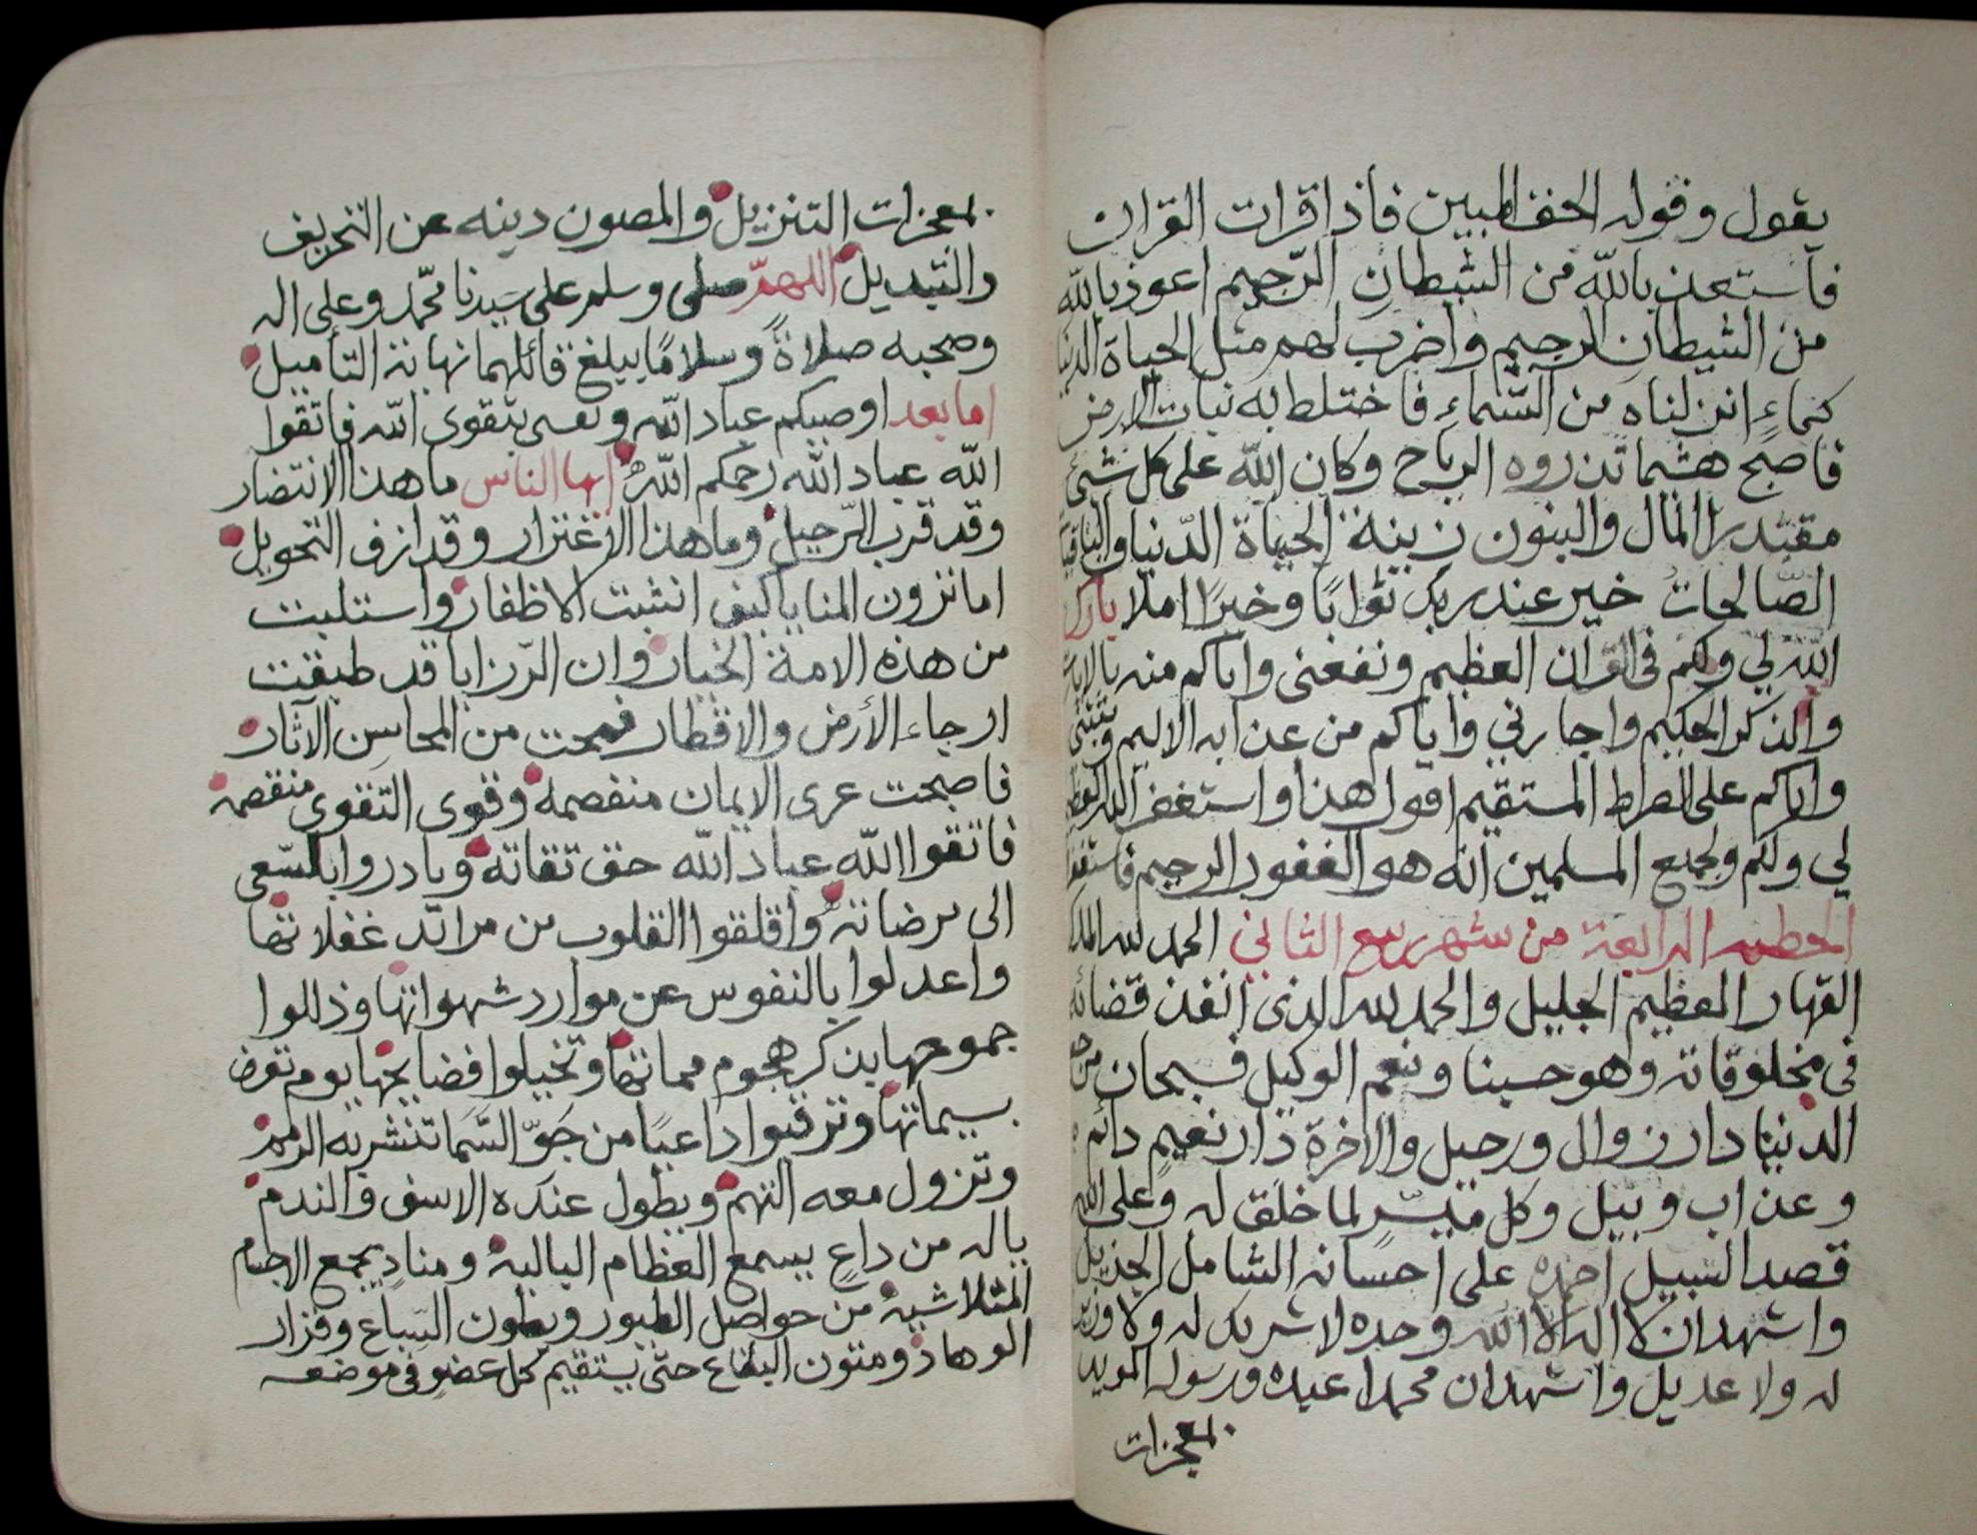 يقول وقوله الحق المبين فاذا قرات القران
فاستعذ بالله من الشيطان الرّجيم اعوذ بالله
من الشيطان الرجيم واضرب لهم مثل الحياة الدنيا
كماءٍ انزلناه من السّماءِ فاختلط به نبات الارض
فاصبح هشما تذروه الرياح وكان الله على كل شئ
مقتدرا المال والبنون زينة الحياة الدّنيا والباقيا
الصّالحات خير عند ربك ثوابًا وخيرًا املا بارك
اللّه لي ولكم فى القران العظيم ونفعنى واياكم منه بالايات
والذكر الحكيم واجارني واياكم من عذابه الاليم وثبتنى
واياكم على الصراط المستقيم اقول هذا واستغفر الله العظيم
لي ولكم ولجميع المسلمين انه هو الغفور الرحيم فاستغفر
الخطبه الرابعة من شهر ربيع الثاني الحمد لله الملك
القهار العظيم الجليل والحمد لله الذى انفذ قضائه
فى مخلوقاته وهو حسبنا ونعم الوكيل فسبحان من
الدنيا دار زوال ورحيل والاخرة دار نعيم دائم
وعذاب وبيل وكل ميسّرٍ لما خلق له وعلى الله
قصد السّبيل احمده على احسانه الشامل الجزيل
واشهد ان لا اله الا الله وحده لا شريك له ولا وزير
له ولا عديل واشهد ان محمدا عبده ورسوله المويد
بمعجزات
بمعجزات التنزيل والمصون دينه عن التحريف
والتبديل اللهمّ صلى وسلم على سيدنا محمّد وعلى اله
وصحبه صلاةً وسلامًا يبلغ قائلهما نهاية التأميل
اما بعد اوصيكم عباد اللّه ونفسى بتقوى اللّه فاتقوا
اللّه عباد اللّه رحمكم اللّهُ ايها الناس ما هذا الانتضار
وقد قرب الرّحيل وما هذا الاغتزار وقد ازف التحويل
اما تزون المنايا كيف انشبت الاظفار واستلبت
من هذه الامة الخيار وان الرّزايا قد طبقت
ارجاء الأرض والاقطار فمحت من المحاسِن الآثار
فاصبحت عرى الايمان منفصمه وقوى التقوى منقصمه
فاتقوا اللّه عباد اللّه حق تقاته وبادروا بالسّعى
الى مرضاته واقلقوا القلوب من مراقد غفلاتها
واعدلوا بالنفوس عن موارد شهواتها وذللوا
جموحها بذكر هجوم مماتها وتخيلوا فضايحها يوم تعرض
بسيماتها وترقبوا داعيًا من جَوّ السَّما تنشر به الرمم
وتزول معه التهم ويطول عنده الاسف والندم
ياله من داعٍ يسمع العظام الباليه ومنادٍ يجمع الاجسام
المتلاشيه من حواصل الطيور وبطون السّباع وقرار
الوهاد ومتون البقاع حتّى يستقيم كل عضوٍ فى موضعه